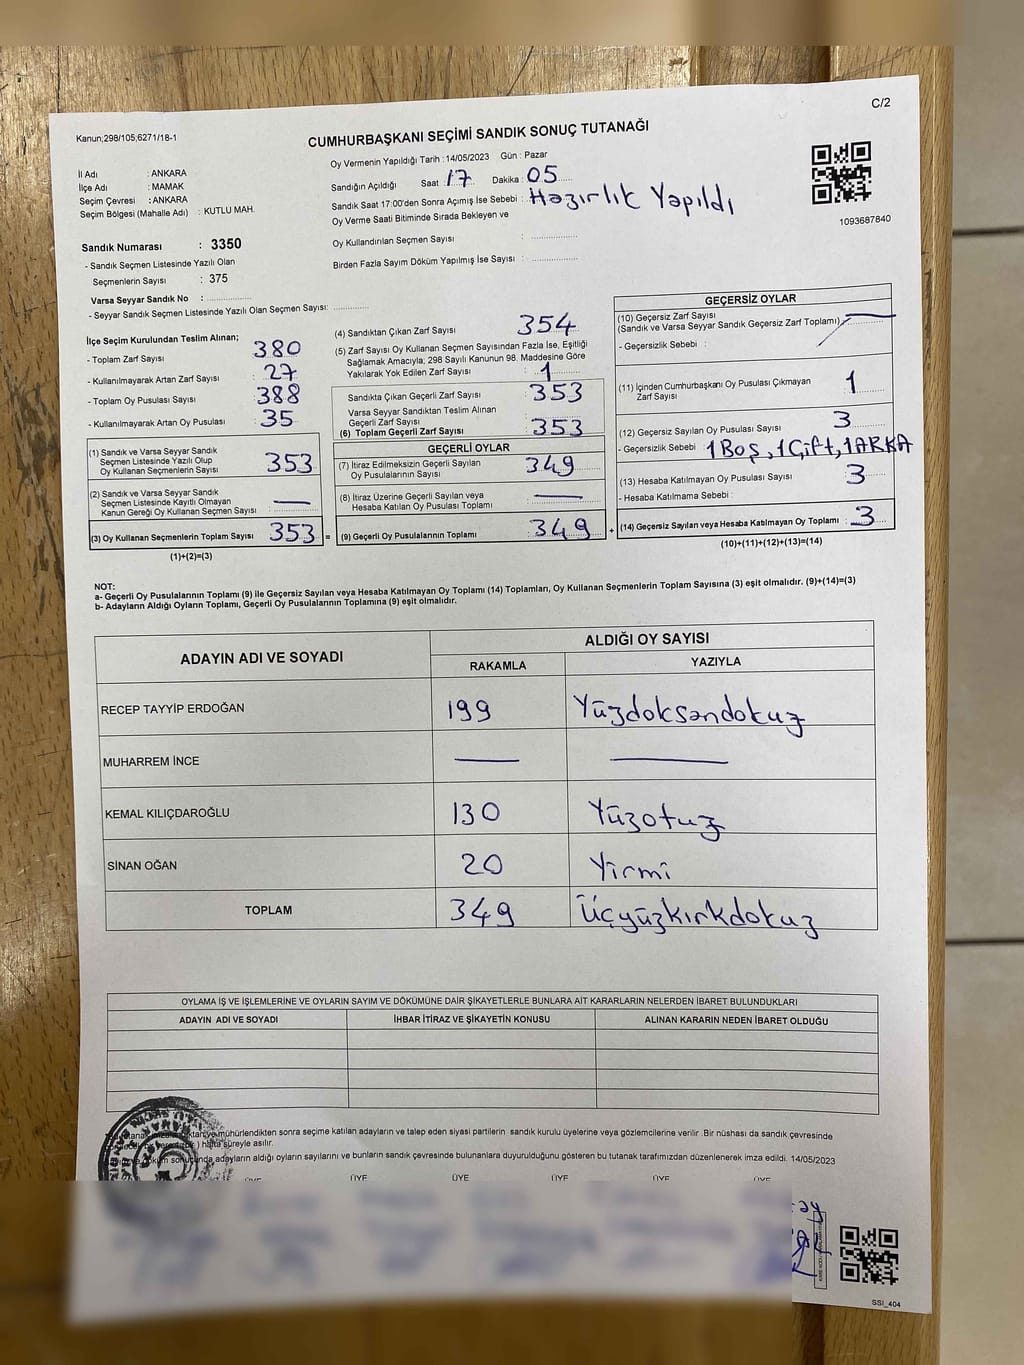 C/2
Kanun;298/105,6271/18-1
CUMHURBAŞKANI SEÇİMİ SANDIK SONUÇ TUTANAĞI
İl Adı : ANKARA
İlçe Adı : MAMAK
Seçim Çevresi : ANKARA
Seçim Bölgesi (Mahalle Adı) : KUTLU MAH.
Oy Vermenin Yapıldığı Tarih : 14/05/2023 Gün : Pazar
Sandığın Açıldığı Saat : 17 Dakika : 05
Sandık Saat 17:00'den Sonra Açımış İse Sebebi : Hazırlık Yapıldı
Oy Verme Saati Bitiminde Sırada Bekleyen ve
Oy Kullandırılan Seçmen Sayısı :
Birden Fazla Sayım Döküm Yapılmış İse Sayısı :
1093687840
Sandık Numarası : 3350
- Sandık Seçmen Listesinde Yazılı Olan
Seçmenlerin Sayısı : 375
Varsa Seyyar Sandık No :
- Seyyar Sandık Seçmen Listesinde Yazılı Olan Seçmen Sayısı:
İlçe Seçim Kurulundan Teslim Alınan;
- Toplam Zarf Sayısı : 380
- Kullanılmayarak Artan Zarf Sayısı : 27
- Toplam Oy Pusulası Sayısı : 388
- Kullanılmayarak Artan Oy Pusulası : 35
(1) Sandık ve Varsa Seyyar Sandık
Seçmen Listesinde Yazılı Olup
Oy Kullanan Seçmenlerin Sayısı : 353
(2) Sandık ve Varsa Seyyar Sandık
Seçmen Listesinde Kayıtlı Olmayan
Kanun Gereği Oy Kullanan Seçmen Sayısı : —
(3) Oy Kullanan Seçmenlerin Toplam Sayısı : 353 =
(1)+(2)=(3)
(4) Sandıktan Çıkan Zarf Sayısı : 354
(5) Zarf Sayısı Oy Kullanan Seçmen Sayısından Fazla İse, Eşitliği
Sağlamak Amacıyla; 298 Sayılı Kanunun 98. Maddesine Göre
Yakılarak Yok Edilen Zarf Sayısı : 1
Sandıkta Çıkan Geçerli Zarf Sayısı : 353
Varsa Seyyar Sandıktan Teslim Alınan
Geçerli Zarf Sayısı :
(6) Toplam Geçerli Zarf Sayısı : 353
GEÇERLİ OYLAR
(7) İtiraz Edilmeksizin Geçerli Sayılan
Oy Pusulalarının Sayısı : 349
(8) İtiraz Üzerine Geçerli Sayılan veya
Hesaba Katılan Oy Pusulası Toplamı : —
(9) Geçerli Oy Pusulalarının Toplamı : 349 +
GEÇERSİZ OYLAR
(10) Geçersiz Zarf Sayısı
(Sandık ve Varsa Seyyar Sandık Geçersiz Zarf Toplamı) : —
- Geçersizlik Sebebi :
(11) İçinden Cumhurbaşkanı Oy Pusulası Çıkmayan
Zarf Sayısı : 1
(12) Geçersiz Sayılan Oy Pusulası Sayısı : 3
- Geçersizlik Sebebi : 1 Boş, 1 Çift, 1 ARKA
(13) Hesaba Katılmayan Oy Pusulası Sayısı : 3
- Hesaba Katılmama Sebebi :
(14) Geçersiz Sayılan veya Hesaba Katılmayan Oy Toplamı : 3
(10)+(11)+(12)+(13)=(14)
NOT:
a- Geçerli Oy Pusulalarının Toplamı (9) ile Geçersiz Sayılan veya Hesaba Katılmayan Oy Toplamı (14) Toplamları, Oy Kullanan Seçmenlerin Toplam Sayısına (3) eşit olmalıdır. (9)+(14)=(3)
b- Adayların Aldığı Oyların Toplamı, Geçerli Oy Pusulalarının Toplamına (9) eşit olmalıdır.
ADAYIN ADI VE SOYADI ALDIĞI OY SAYISI
RAKAMLA YAZIYLA
RECEP TAYYİP ERDOĞAN 199 Yüzdoksandokuz
MUHARREM İNCE — —
KEMAL KILIÇDAROĞLU 130 Yüzotuz
SİNAN OĞAN 20 Yirmi
TOPLAM 349 Üçyüzkırkdokuz
OYLAMA İŞ VE İŞLEMLERİNE VE OYLARIN SAYIM VE DÖKÜMÜNE DAİR ŞİKAYETLERLE BUNLARA AİT KARARLARIN NELERDEN İBARET BULUNDUKLARI
ADAYIN ADI VE SOYADI İHBAR İTİRAZ VE ŞİKAYETİN KONUSU ALINAN KARARIN NEDEN İBARET OLDUĞU
mühürlendikten sonra seçime katılan adayların ve talep eden siyasi partilerin sandık kurulu üyelerine veya gözlemcilerine verilir .Bir nüshası da sandık çevresinde
hafta süreyle asılır.
adayların aldığı oyların sayılarını ve bunların sandık çevresinde bulunanlara duyurulduğunu gösteren bu tutanak tarafımızdan düzenlenerek imza edildi. 14/05/2023
ÜYE ÜYE ÜYE ÜYE ÜYE ÜYE
SSI_404